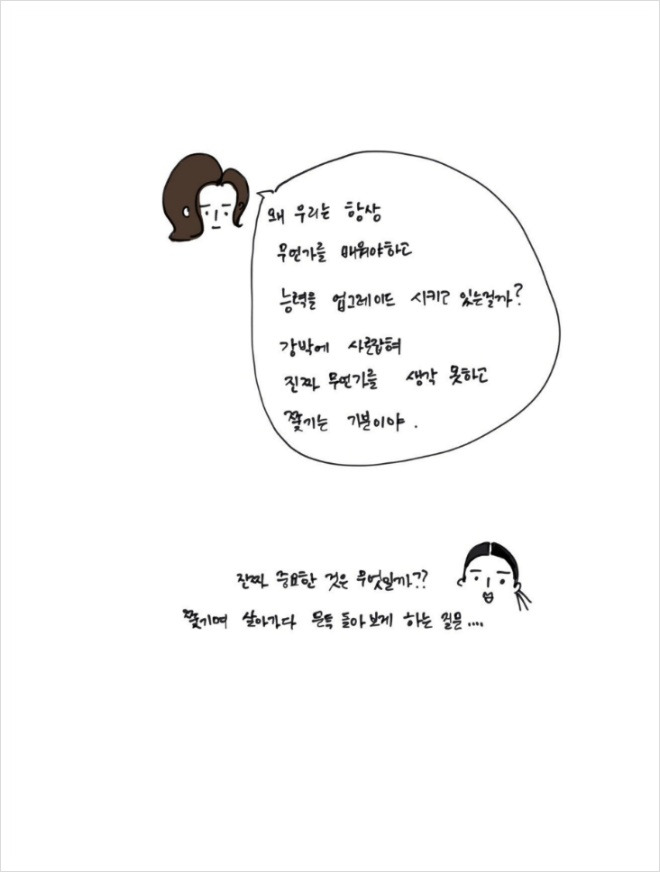 왜 우리는 항상
무언가를 배워야하고
능력을 업그레이드 시키고 있는걸까?
강박에 사로잡혀
진짜 무언가를 생각 못하고
쫓기는 기분이야.
진짜 중요한 것은 무엇일까??
쫓기며 살아가다 문득 돌아보게 하는 질문....